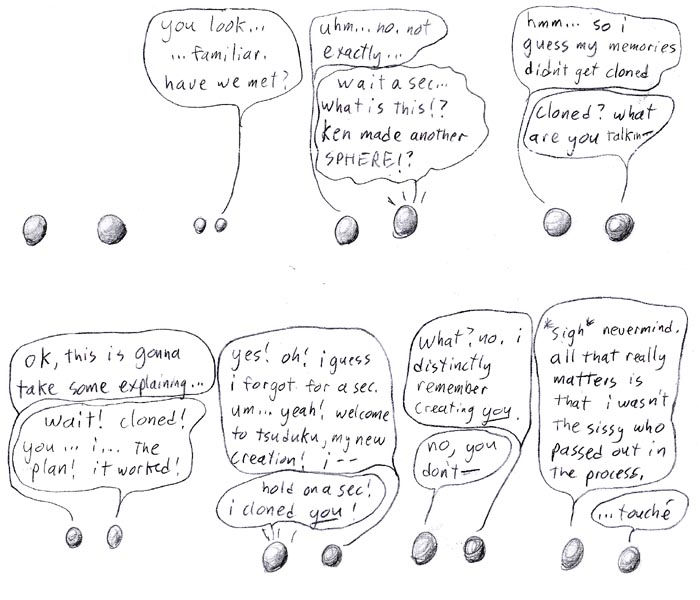 you look...
... familiar.
have we met?
uhm... no. not
exactly...
wait a sec...
what is this!?
Ken made another
SPHERE!?
hmm... so i
guess my memories
didn't get cloned
cloned? what
are you talkin—
ok, this is gonna
take some explaining...
wait! cloned!
you ... i ... the
plan! it worked!
yes! oh! i guess
i forgot for a sec.
um... yeah! welcome
to tsuduku, my new
creation! i--
hold on a sec!
i cloned you!
what? no. i
distinctly
remember
creating you.
no, you
don't—
*sigh* nevermind.
all that really
matters is
that i wasn't
the sissy who
passed out in
the process.
...touché